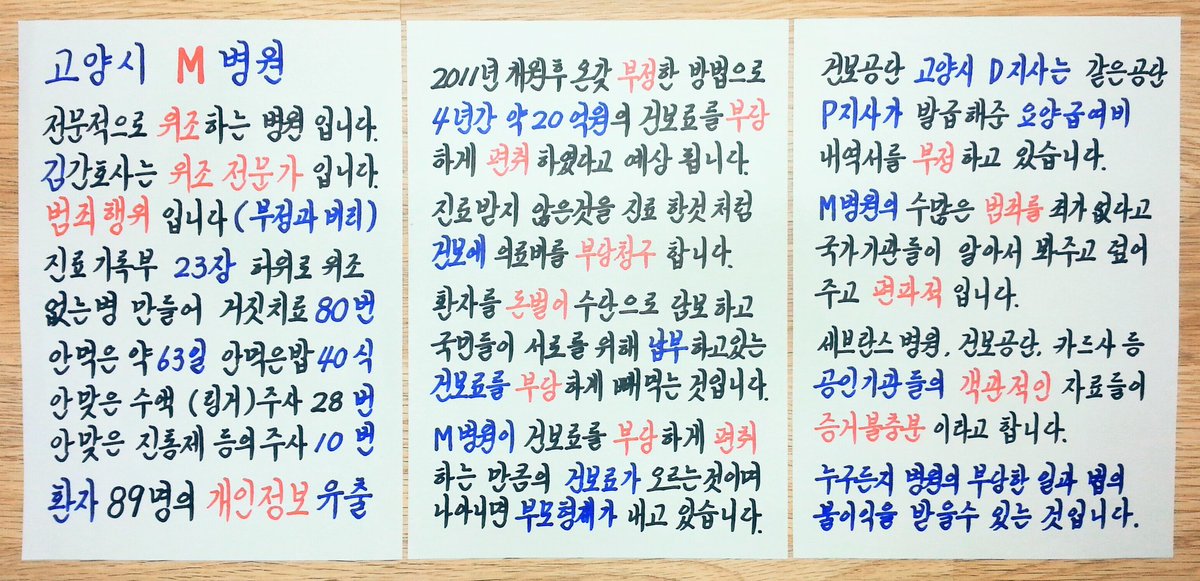 고양시 M 병원
전문적으로 위조하는 병원 입니다.
김간호사는 위조 전문가 입니다.
범죄행위 입니다 (부정과 비리)
진료기록부 23장 허위로 위조
없는병 만들어 거짓치료 80번
안먹은 약 63일 안먹은밥 40식
안맞은 수액 (링거)주사 28번
안맞은 진통제 등의주사 10번
환자 89명의 개인정보 유출
2011년 개원후 온갖 부정한 방법으로
4년간 약 20억원의 건보료를 부당
하게 편취 하였다고 예상 됩니다.
진료받지 않은것을 진료 한것처럼
건보에 의료비를 부당청구 합니다.
환자를 돈벌이 수단으로 담보 하고
국민들이 서로를 위해 납부 하고있는
건보료를 부당 하게 빼먹는 것입니다.
M병원이 건보료를 부당하게 편취
하는 만큼의 건보료가 오르는것이며
나아니면 부모형제가 내고 있습니다.
건보공단 고양시 D지사는 같은공단
P지사가 발급해준 요양급여비
내역서를 부정 하고 있습니다.
M병원의 수많은 범죄를 죄가 없다고
국가기관들이 알아서 봐주고 덮어
주고 편파적 입니다.
세브란스병원, 건보공단, 카드사 등
공인기관들의 객관적인 자료들이
증거불충분 이라고 합니다.
누구든지 병원의 부당한 일과 법의
불이익을 받을수 있는 것입니다.